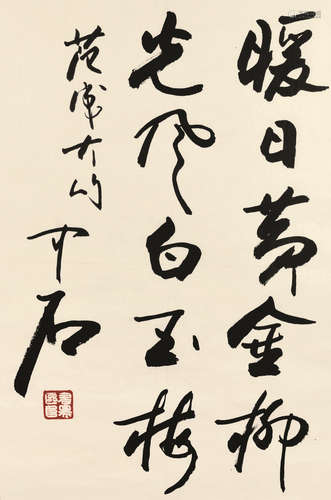 暖日黄金柳
光风白玉梅
范成大句
中石